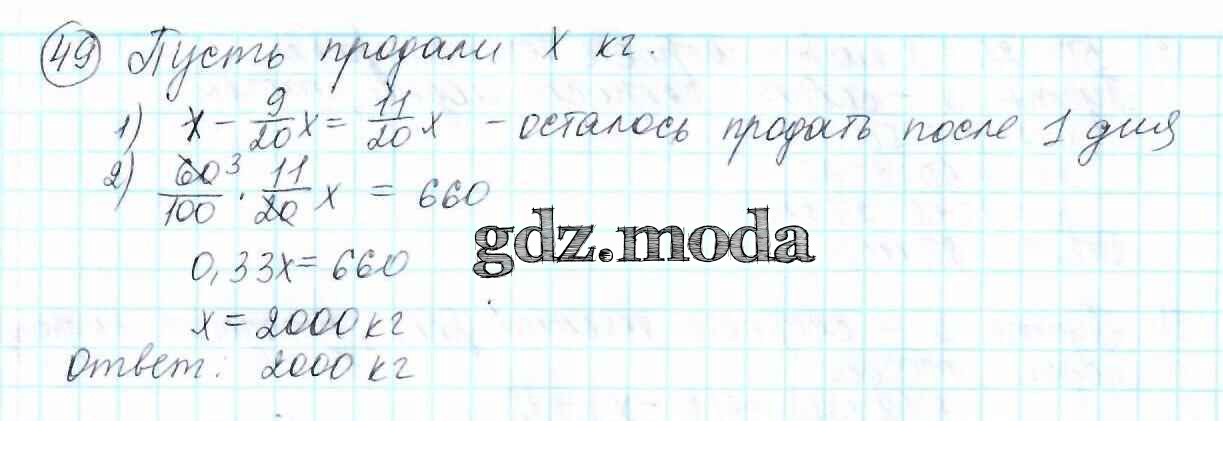 49 Пусть продали x кг.
1) x - 9/20 x = 11/20 x - осталось продать после 1 дня
2) 60 3/100 · 11/20 x = 660
gdz.moda
0,33x = 660
x = 2000 кг
Ответ: 2000 кг